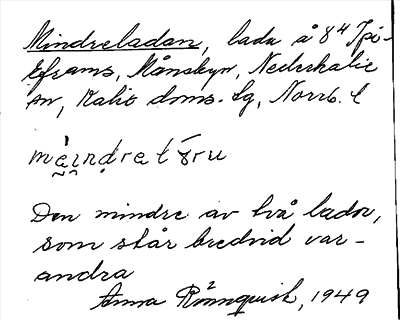 Mindreladan, lada å 8⁴ Spi-
Eframs, Månsbyn, Nederkalix
sn, Kalix doms. lg, Norrb. l
Den mindre av två lador,
som står bredvid var-
andra
Anna Rönnquist, 1949